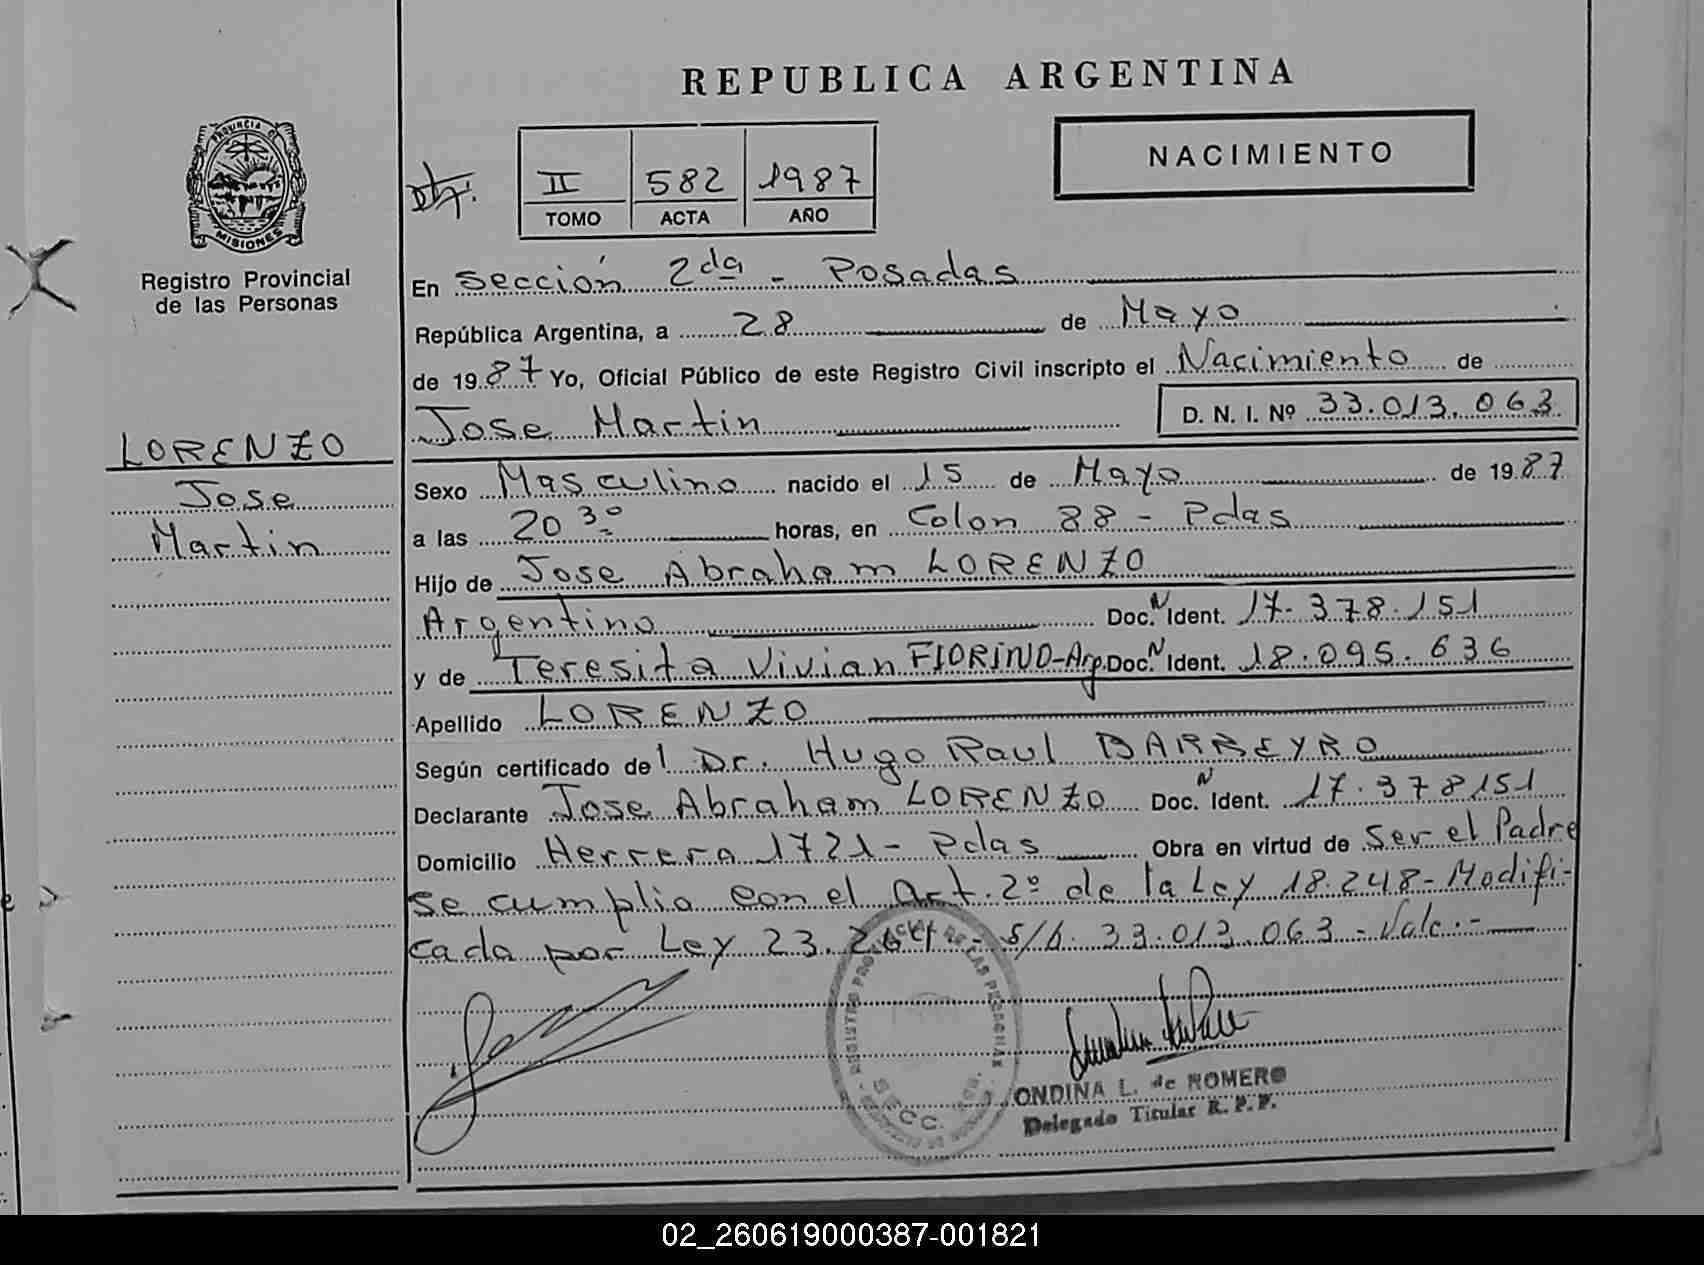 REPUBLICA ARGENTINA
NACIMIENTO
II 582 1987
TOMO ACTA AÑO
PROVINCIA DE
MISIONES
Registro Provincial
de las Personas
LORENZO
Jose
Martin
En Sección 2da - Posadas
República Argentina, a 28 de Mayo
de 1987 Yo, Oficial Público de este Registro Civil inscripto el Nacimiento de
Jose Martin D. N. I. Nº 33.013.063
Sexo Masculino nacido el 15 de Mayo de 1987
a las 20 30 horas, en Colon 88 - Pdas
Hijo de Jose Abraham LORENZO
Argentino Doc. N Ident. 17.378.151
y de Teresita Vivian FIORINO-Arg. Doc. N Ident. 18.095.636
Apellido LORENZO
Según certificado del Dr. Hugo Raul BARREYRO
Declarante Jose Abraham LORENZO Doc. N Ident. 17.378151
Domicilio Herrera 1721 - Pdas Obra en virtud de Ser el Padre
se cumplio con el Art. 2º de la Ley 18.248 - Modifi-
cada por Ley 23.264 - S/b. 33.013.063 - Vale.-
REGISTRO PROVINCIAL DE LAS PERSONAS
SECC.
ONDINA L. de ROMERO
Delegado Titular R. P. P.
02_260619000387-001821